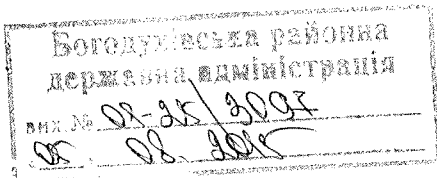 Богодухівська районна
державна адміністрація
вих.№ 01-25/3097
05 . 08. 2015